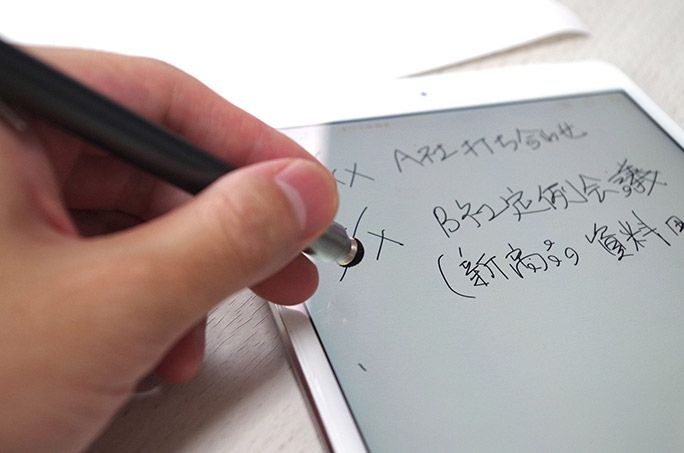 XX A社打ち合わせ
X/X B社定例会議
(新商品資料